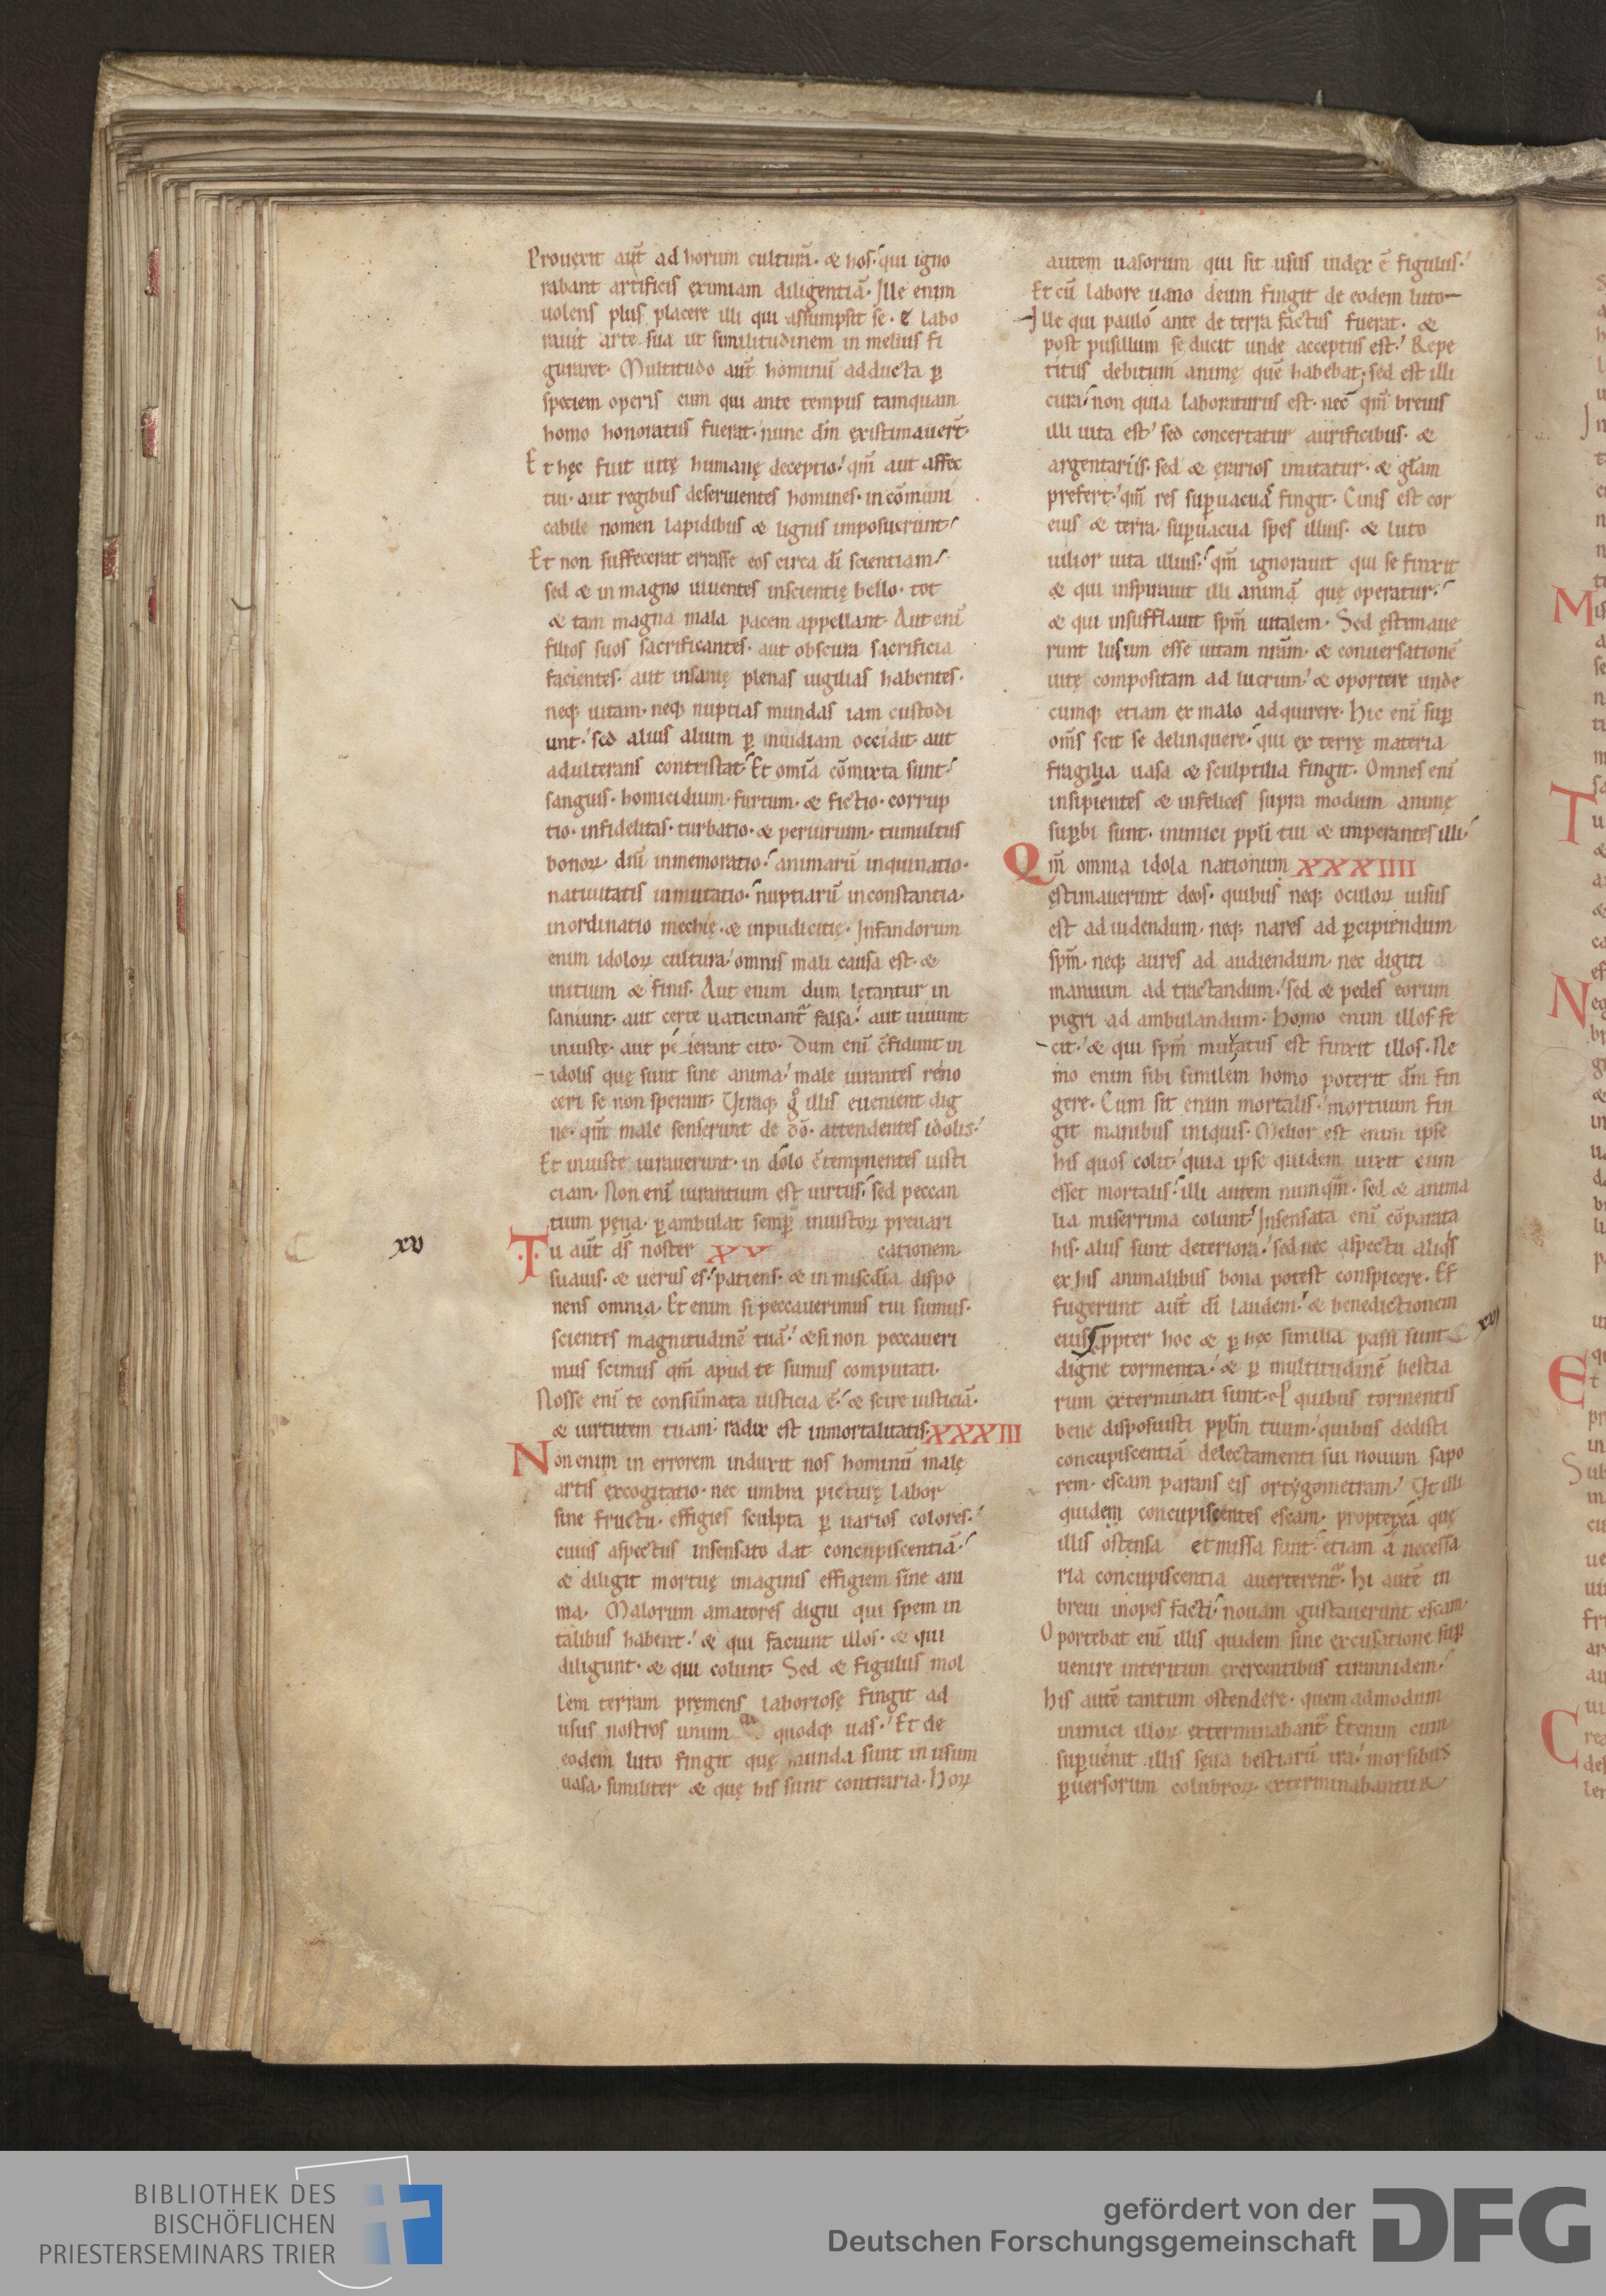 Prouexit aūt ad horum culturā· & hos·́ qui igno
rabant artificis eximiam diligentiā· Ille enim
uolens plus placere illi qui assumpsit se· e labo
rauit arte sua ut similitudinem in melius fi
guraret· Multitudo aūt hominū adducta ꝑ
speciem operis eum qui ante tempus tamquam
homo honoratus fuerat·́ nunc dm̄ existimauert̄·
Et hęc fuit uitę humanę deceptio·́ qm̄ aut affec
tui· aut regibus deseruientes homines· incōmuni
cabile nomen lapidibus & lignis imposuerunt·́
Et non suffecerat errasse eos circa dī scientiam·́
sed & in magno uiuentes inscientię bello· tot
& tam magna mala pacem appellant· Aut enī
filios suos sacrificantes· aut obscura sacrificia
facientes· aut insanię plenas uigilias habentes·
neq; uitam· neq; nuptias mundas iam custodi
unt·́ sed alius alium ꝑ inuidiam occidit· aut
adulterans contristat·́ Et omīa cōmixta sunt·́
sanguis· homicidium· furtum· & fictio· corrup
tio· infidelitas· turbatio· & periurium· tumultus
bonoꝝ· dnī inmemoratio·́ animarū inquinatio·
natiuitatis inmutatio·́ nuptiarū inconstantia·
inordinatio mechię· & inpudicitię· Infandorum
enim idoloꝝ cultura·́ omnis mali causa est· &
initium & finis· Aut enim dum lętantur in
saniunt· aut certe uaticinant᷑ falsa·́ aut uiuunt
iniustę· aut peierant cito· Dum enī c̄fidunt in
idolis quę sunt sine anima·́ male iurantes no
ceri se non sperant· Utraq; gͦ illis euenient dig
ne· qm̄ male senserunt de dō· attendentes idolis·́
Et iniuste iurauerunt· in dolo c̄tempnentes iusti
ciam· Non enī iurantium est uirtus·́ sed peccan
tium pęna· ꝑambulat semꝑ iniustoꝝ preuari
Tu aūt dŝ noster XV cationem·
xv
suauis· & uerus es·́ patiens· & in miscd̄ia dispo
nens omnia· Etenim si peccauerimus tui sumus·
scientes magnitudinē tuā·́ & si non peccaueri
mus scimus qm̄ apud te sumus computati·
Nosse enī te consūmata iusticia ē·́ & scire iusticiā·
& uirtutem tuam· radix est inmortalitatis· XXXIII
Non enim in errorem induxit nos hominū malę
artis excogitatio· nec umbra picturę labor
sine fructu· effigies sculpta ꝑ uarios colores·́
cuius aspectus insensato dat concupiscentiā·́
& diligit mortuę imaginis effigiem sine ani
ma· Malorum amatores digni qui spem in
talibus habent·́ & qui faciunt illos· & qui
diligunt· & qui colunt· Sed & figulus mol
lem terram premens laboriosę fingit ad
usus nostros unum quodq; uas·́ Et de
eodem luto fingit quę munda sunt in usum
uasa· similiter & quę his sunt contraria· Hoꝝ
autem uasorum qui sit usus iudex ē figulus·́
Et cū labore uano deum fingit de eodem luto
Ille qui paulo ante de terra factus fuerat· &
post pusillum se ducit unde acceptus est·́ Repe
titus debitum animę quē habebat; sed est illi
cura·́ non quia laboraturus est· nec qm̄ breuis
illi uita est·́ sed concertatur aurificibus· &
argentariis· sed & ęrarios imitatur· & glām
prefert·́ qm̄ res suꝑuacuas fingit· Cinis est cor
eius & terra suꝑuacua spes illius· & luto
uilior uita illius·́ qm̄ ignorauit qui se finxit
& qui inspirauit illi animā quę operatur·́
& qui insufflauit spm̄ uitalem· Sed ęstimaue
runt lusum esse uitam nrām· & conuersationē
uitę compositam ad lucrum·́ & oportere unde
cumq; etiam ex malo adquirere· Hic enī suꝑ
oms̄ scit se delinquere·́ qui ex terrę materia
fragilia uasa & sculptilia fingit· Omnes enī
insipientes & infelices supra modum animę
suꝑbi sunt· inimici ppl̄i tui & imperantes illi·́
Qm̄ omnia idola nationum XXXIIII
ęstimauerunt deos· quibus neq; oculoꝝ uisus
est ad uidendum· neq; nares ad ꝑcipiendum
spm̄· neq; aures ad audiendum· nec digiti
manuum ad tractandum·́ sed & pedes eorum
pigri ad ambulandum· Homo enim illos fe
cit·́ & qui spm̄ mutatus est finxit illos· Ne
mo enim sibi similem homo poterit dm̄ fin
gere· Cum sit enim mortalis·́ mortuum fin
git manibus iniquis· Melior est enim ipse
his quos colit·́ quia ipse quidem uixit cum
esset mortalis·́ illi autem numqm̄· sed & anima
lia miserrima colunt·́ Insensata enī cōparata
his· aliis sunt deteriora·́ sed nec aspectu aliqs
ex his animalibus bona potest conspicere· Ef
fugerunt aūt dī laudem·́ & benedictionem
eius ꝓpter hoc & ꝑ hęc similia passi sunt xvi
digne tormenta·́ & ꝑ multitudinē bestia
rum exterminati sunt· quibus tormentis
bene disposuisti ppl̄m tuum·́ quibus dedisti
concupiscentiā delectamenti sui nouum sapo
rem· escam parans eis ortygometram·́ Ut illi
quidem concupiscentes escam· propterea quę
illis ostensa et missa sunt·́ etiam a necessa
ria concupiscentia auerterent᷑· Hi autē in
breui inopes facti·́ nouam gustauerunt escam·
Oportebat enī illis quidem sine excusatione suꝑ
uenire interitum exercentibus tirannidem·́
his autē tantum ostendere· quemadmodum
inimici illoꝝ exterminabant᷑· Etenim cum
suꝑuenit illis sęua bestiarū ira·́ morsibus
ꝑuersorum colubroꝝ exterminabantur
BIBLIOTHEK DES
BISCHÖFLICHEN
PRIESTERSEMINARS TRIER
gefördert von der
Deutschen Forschungsgemeinschaft
DFG